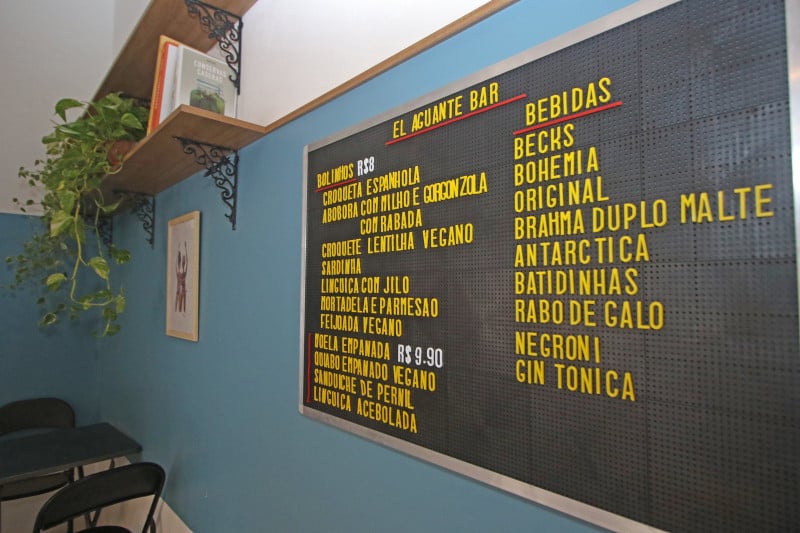 EL AGUANTE BAR
BOLINHOS R$8
CROQUETA ESPANHOLA
ABOBORA COM MILHO E GORGONZOLA
COM RABADA
CROQUETE LENTILHA VEGANO
SARDINHA
LINGUIÇA COM JILO
MORTADELA E PARMESAO
FEIJOADA VEGANO
MOELA EMPANADA R$ 9.90
QUIABO EMPANADO VEGANO
SANDUICHE DE PERNIL
LINGUIÇA ACEBOLADA
BEBIDAS
BECKS
BOHEMIA
ORIGINAL
BRAHMA DUPLO MALTE
ANTARCTICA
BATIDINHAS
RABO DE GALO
NEGRONI
GIN TONICA
CONSERVAS
CASERAS